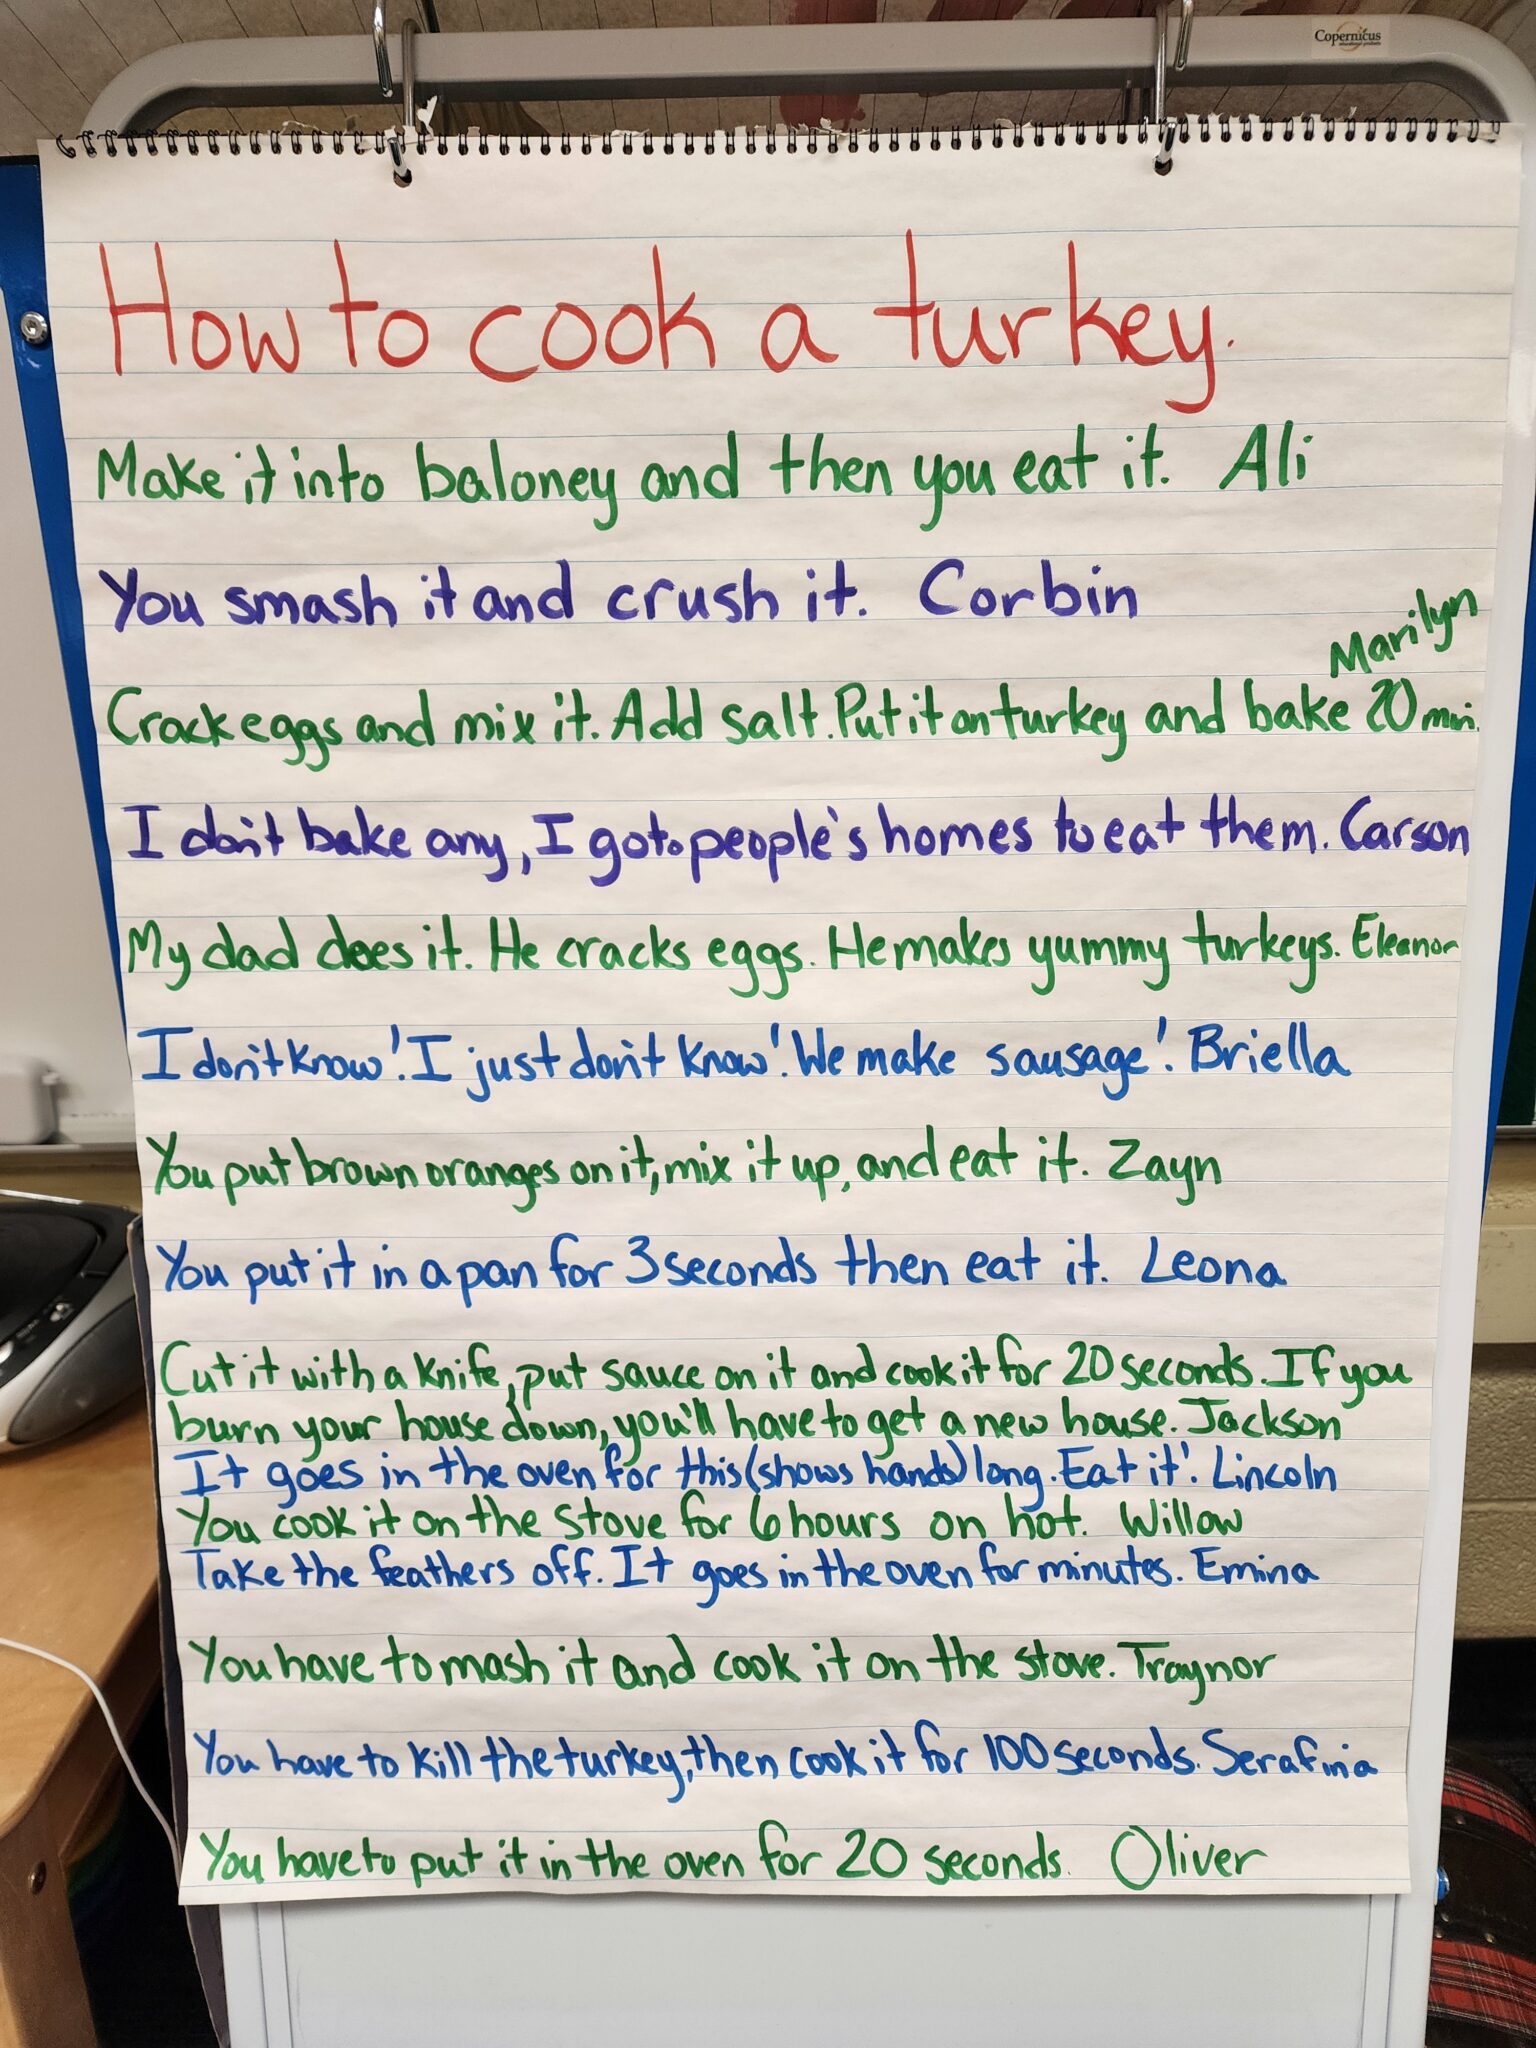 Copernicus
educational products
How to cook a turkey.
Make it into baloney and then you eat it. Ali
You smash it and crush it. Corbin
Marilyn
Crack eggs and mix it. Add salt. Put it on turkey and bake 20 min.
I don't bake any, I go to people's homes to eat them. Carson
My dad does it. He cracks eggs. He makes yummy turkeys. Eleanor
I don't know! I just don't know! We make sausage! Briella
You put brown oranges on it, mix it up, and eat it. Zayn
You put it in a pan for 3 seconds then eat it. Leona
Cut it with a knife, put sauce on it and cook it for 20 seconds. If you
burn your house down, you'll have to get a new house. Jackson
It goes in the oven for this (shows hands) long. Eat it! Lincoln
You cook it on the stove for 6 hours on hot. Willow
Take the feathers off. It goes in the oven for minutes. Emina
You have to mash it and cook it on the stove. Traynor
You have to kill the turkey, then cook it for 100 seconds. Serafina
You have to put it in the oven for 20 seconds. Oliver